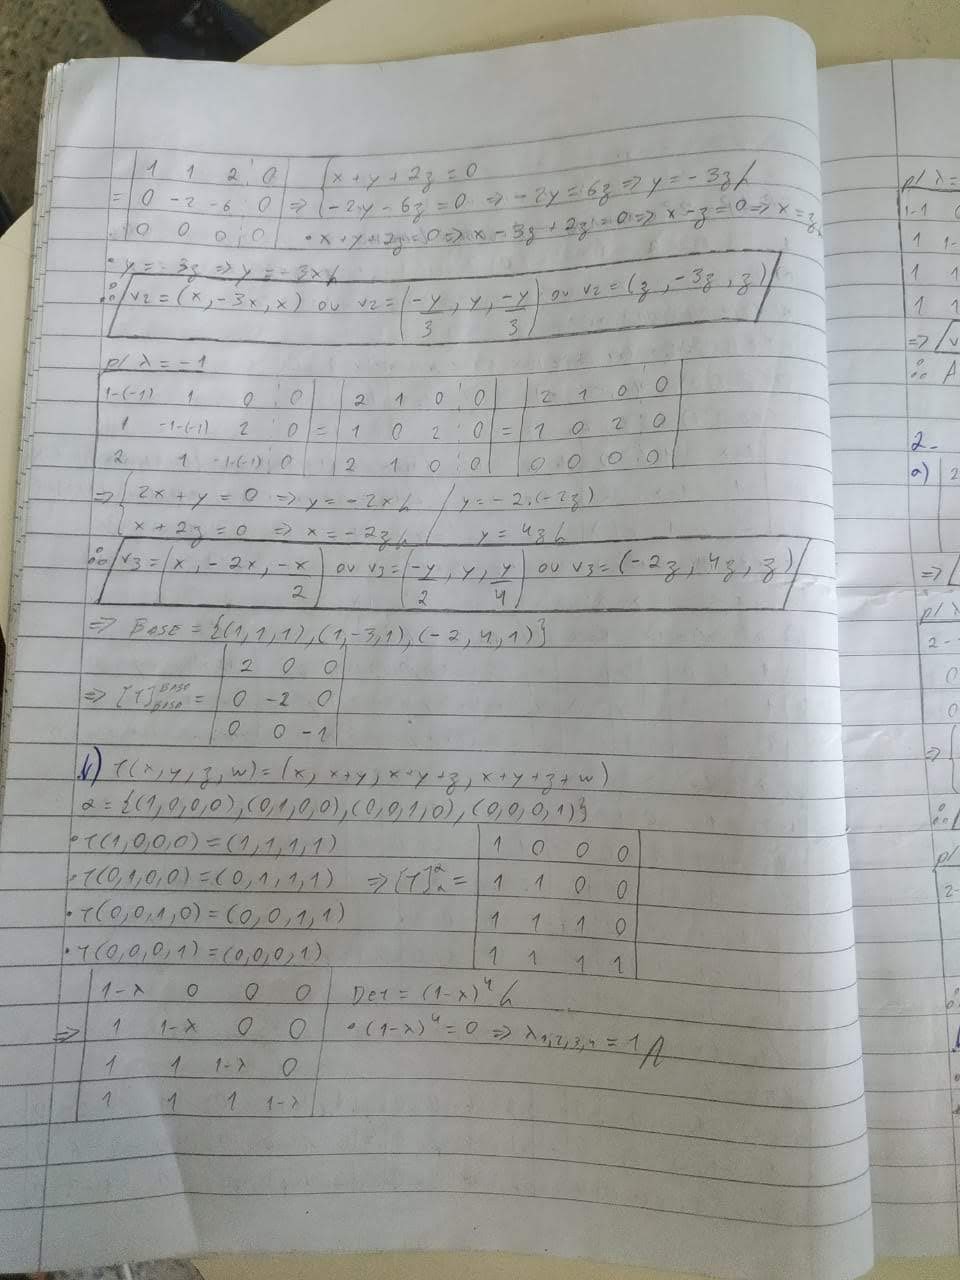 | 1 1 2 ⋮ 0 | { x + y + 2z = 0
= | 0 -2 -6 ⋮ 0 | => { -2y - 6z = 0 => -2y = 6z => y = -3z //
| 0 0 0 ⋮ 0 | • x + y + 2z = 0 => x - 3z + 2z = 0 => x - z = 0 => x = z //
• y = -3z => y = -3x //
∴ v2 = (x, -3x, x) ou v2 = (-y/3, y, -y/3) ou v2 = (z, -3z, z)
p/ λ = -1
| 1-(-1) 1 0 ⋮ 0 | | 2 1 0 ⋮ 0 | | 2 1 0 ⋮ 0 |
| 1 -1-(-1) 2 ⋮ 0 | = | 1 0 2 ⋮ 0 | = | 1 0 2 ⋮ 0 |
| 2 1 -1-(-1) ⋮ 0 | | 2 1 0 ⋮ 0 | | 0 0 0 ⋮ 0 |
=> { 2x + y = 0 => y = -2x // / y = -2.(-2z)
{ x + 2z = 0 => x = -2z // / y = 4z //
∴ v3 = (x, -2x, -x/2) ou v3 = (-y/2, y, y/4) ou v3 = (-2z, 4z, z)
=> BASE = {(1,1,1), (1,-3,1), (-2,4,1)}
| 2 0 0 |
=> [T]^BASE_BASE = | 0 -2 0 |
| 0 0 -1 |
b) T(x,y,z,w) = (x, x+y, x+y+z, x+y+z+w)
α = {(1,0,0,0), (0,1,0,0), (0,0,1,0), (0,0,0,1)}
• T(1,0,0,0) = (1,1,1,1) | 1 0 0 0 |
• T(0,1,0,0) = (0,1,1,1) => [T]^α_α = | 1 1 0 0 |
• T(0,0,1,0) = (0,0,1,1) | 1 1 1 0 |
• T(0,0,0,1) = (0,0,0,1) | 1 1 1 1 |
| 1-λ 0 0 0 | DET = (1-λ)^4 //
=> | 1 1-λ 0 0 | • (1-λ)^4 = 0 => λ1,2,3,4 = 1 //
| 1 1 1-λ 0 |
| 1 1 1 1-λ |
p/ λ =
1-1 0
1 1-
1 1
1 1
=> v
∴ A
2-
a) | 2
=>
p/ λ
2-
0
0
=>
∴
p/
2-